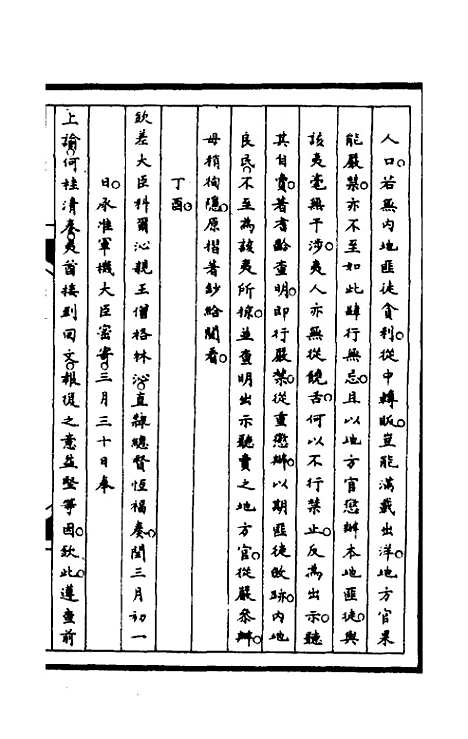 人口。若無內地匪徒貪利。從中轉販。豈能滿載出洋。地方官果
能嚴禁。亦不至如此肆行無忌。且以地方官懲辦本地匪徒。與
該夷毫無干涉。夷人亦無從饒舌。何以不行禁止。反為出示。聽
其自賣。著耆齡查明。即行嚴禁。從重懲辦。以期匪徒斂跡。內地
良民。不至為該夷所掠。並查明出示聽賣之地方官。從嚴參辦。
毋稍徇隱。原摺著鈔給閱看。
丁酉。
欽差大臣科爾沁親王僧格林沁。直隸總督恆福奏。閏三月初一
日。承准軍機大臣密寄。三月三十日奉
上諭。何桂清奏。夷酋接到回文。報復之意益堅等因。欽此。遵查前